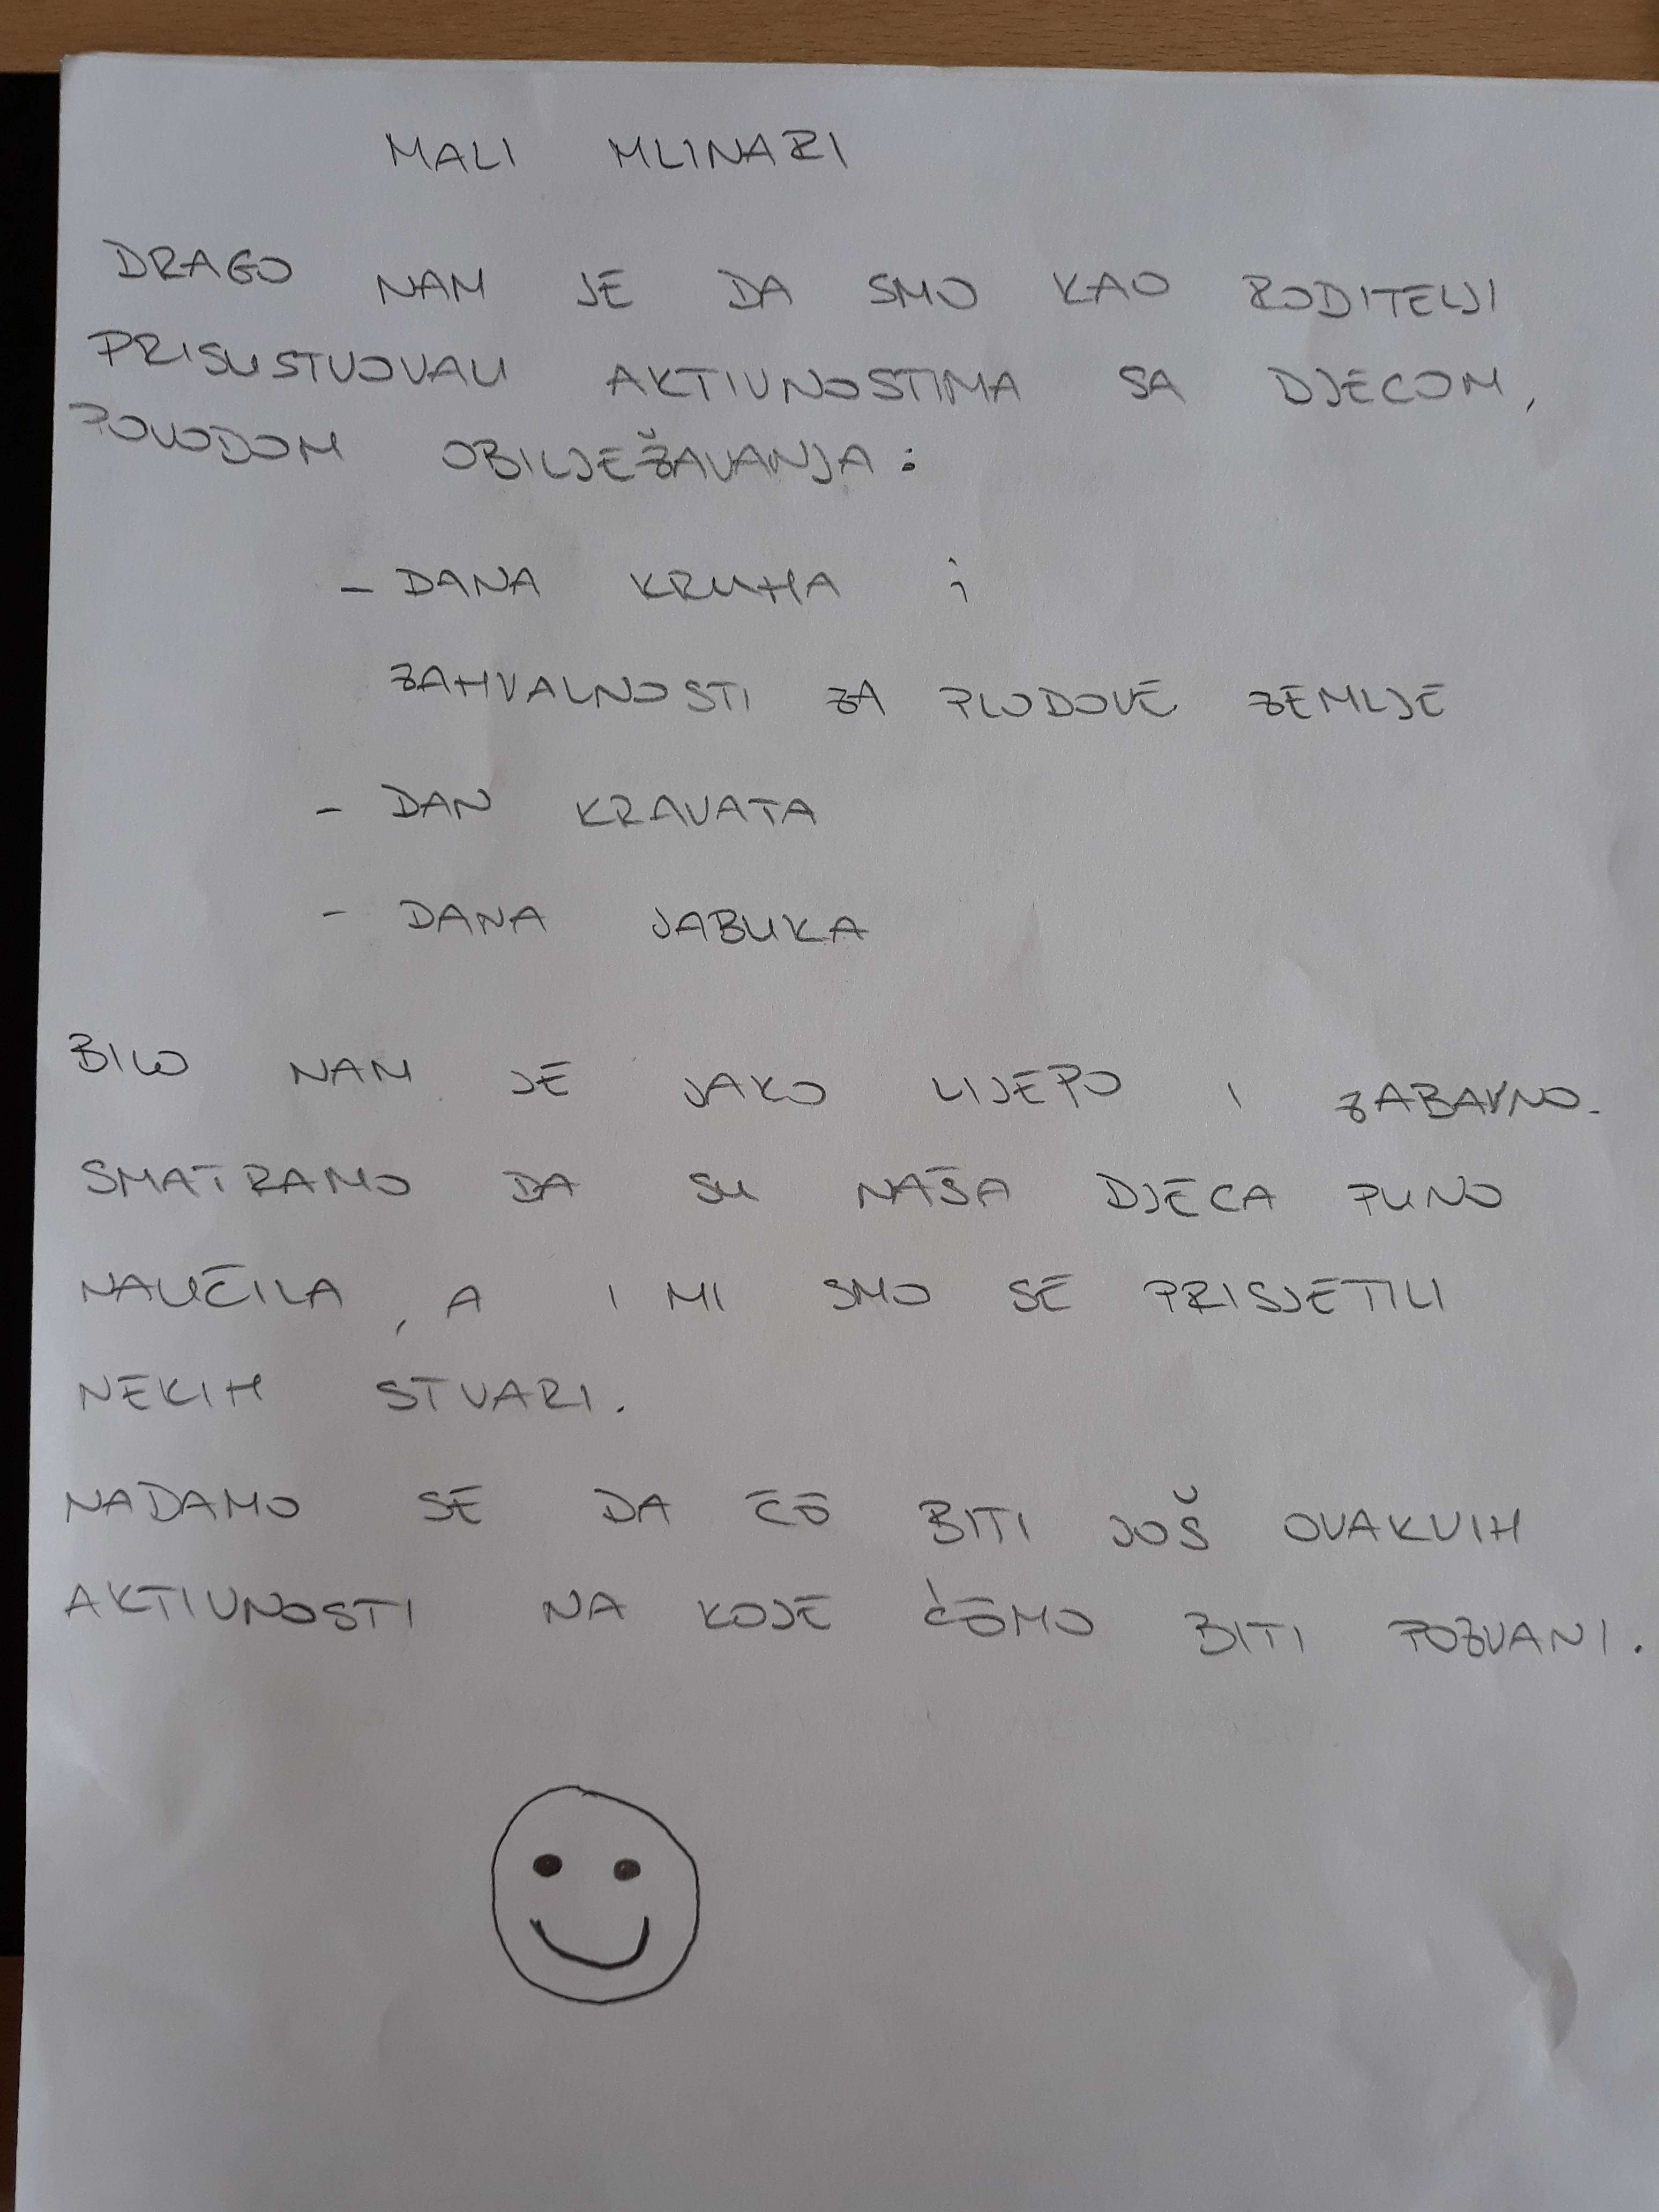 MALI MLINARI
DRAGO NAM JE DA SMO KAO RODITELJI
PRISUSTVOVALI AKTIVNOSTIMA SA DJECOM,
POVODOM OBILJEŽAVANJA:
- DANA KRUHA i
ZAHVALNOSTI ZA PLODOVE ZEMLJE
- DAN KRAVATA
- DANA JABUKA
BILO NAM JE JAKO LIJEPO I ZABAVNO.
SMATRAMO DA SU NAŠA DJECA PUNO
NAUČILA, A I MI SMO SE PRISJETILI
NEKIH STVARI.
NADAMO SE DA ĆE BITI JOŠ OVAKVIH
AKTIVNOSTI NA KOJE ĆEMO BITI POZVANI.